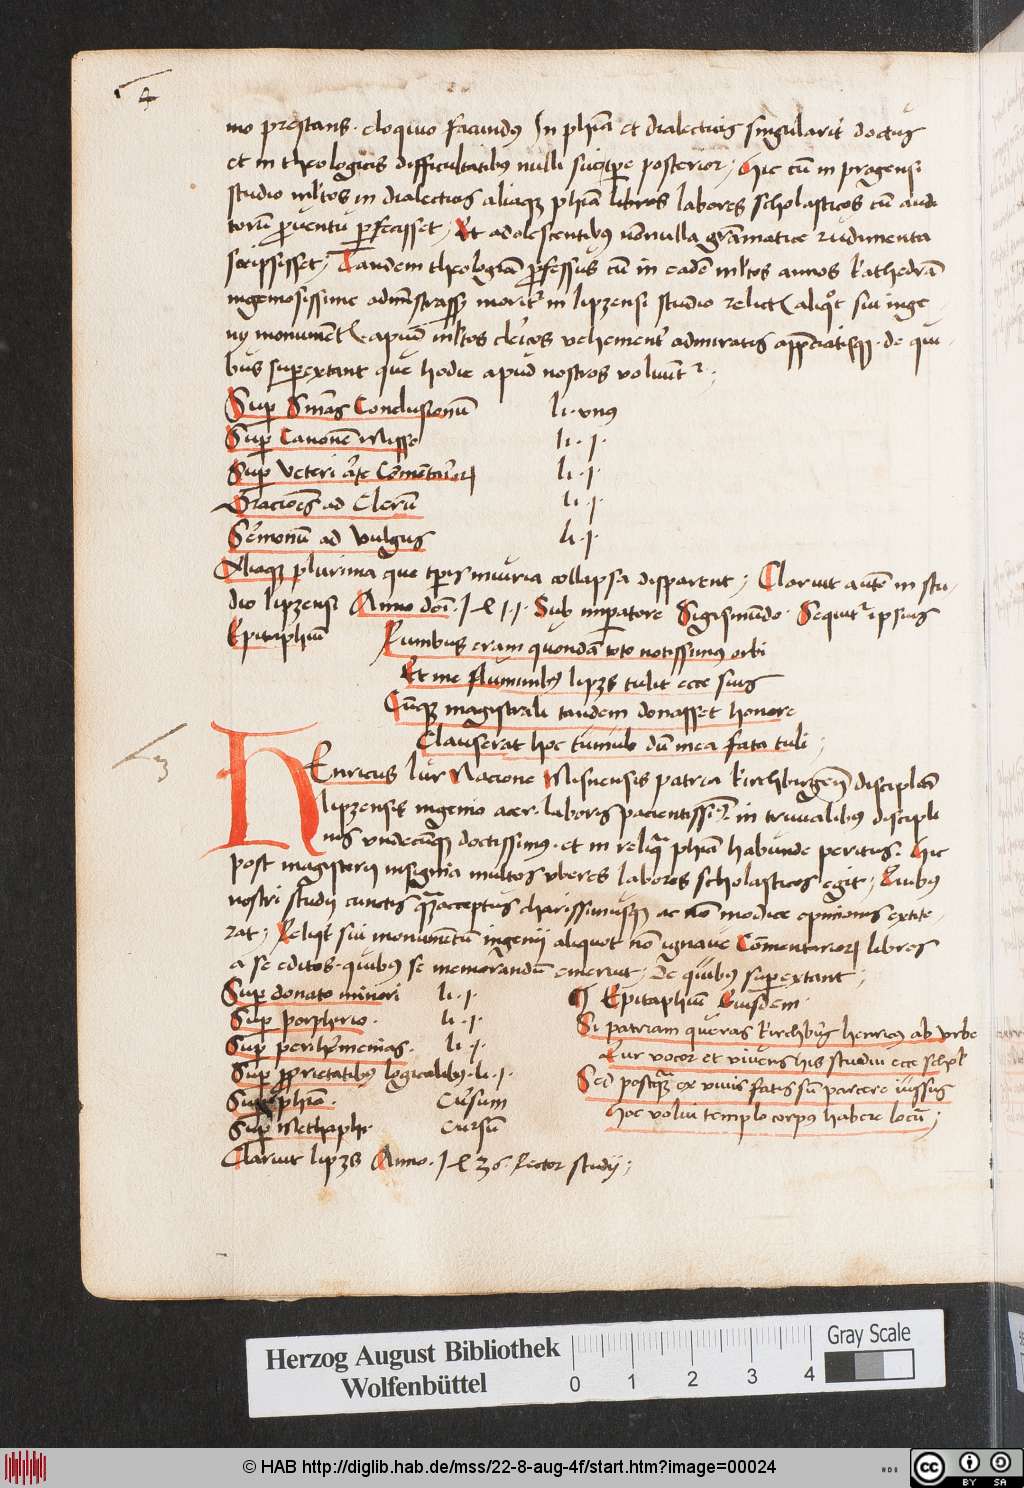 4
mo prestans. eloquio facundus In phia et dialecticis singularit doctus
et in theologicis difficultatibus nulli suo tpe posterior, Hic cum in pragensi
studio mltos in dialecticis aliaque phia libros labores scholasticos cum audi
torum proventu perfecisset, Et adolescentibus nonnulla gramatice rudimenta
scripsisset, Tandem theologiam professus cum in eadem mltos annos kathedram
ingeniosissime administrasset moritur in lipzensi studio relictis aliquot sui inge
nij monumentis apud mltos clericos vehementer admiratis appreciatisque. de qui
bus superextant que hodie apud nostros voluunt ;
Sup Smas Conclusionum li. vnus
Sup Canonem Misse li. j.
Sup Veteri arte Comentarior li. j.
Oraciones ad Clerum li. j.
Sermonum ad vulgus li. j.
Aliaque plurima que tpis iniuria collapsa disparent; Claruit autem in stu-
dio lipzensi Anno dni. Sub imperatore Sigismundo. Sequitur ipsius
Epitaphium Rumbus eram quondam toto notissimus orbi
Et me fluminibus lipzs tulit ecce suis
Cumque magistrali tandem donasset honore
Clauserat hoc tumulo dum mea fata tuli ;
3
HEnricus lur Nacione Misnensis patria kirchburgen disciplina
lipzensis ingenio acer. laboris pacientissim. in trivialibus discipli
nis vndecumque doctissimus. et in reliqua phia habunde peritus. Hic
post magisterij insignia multos vberes labores scholasticos egit; Quibus
nostri studij cunctis quam acceptus charissimusque ac non modice opinionis extite-
rat; Reliqt sui monumentum ingenij aliquot non ignave Comentarior libros
a se editos. quibus se memorandum emeruit; De quibus superextant ;
Sup donato minori li. j.
Sup porphirio. li. j.
Sup perihermenias. li. j.
Sup proprietatibus logicalibus. li. j.
Sup phia. Cursum
Sup Methaphi Cursum
¶ Epitaphium Eiusdem.
Si patriam queras kirchburg henricus ab vrbe
Lur vocor et vivens his studui ecce schol
Sed postquam ex vivis fatis sum parcere iussus
Hoc volui templo corpus habere locum;
Claruit lipzs Anno. Rector studij ;
Herzog August Bibliothek
Wolfenbüttel
0 1 2 3 4
Gray Scale
© HAB http://diglib.hab.de/mss/22-8-aug-4f/start.htm?image=00024
HDS
cc BY SA